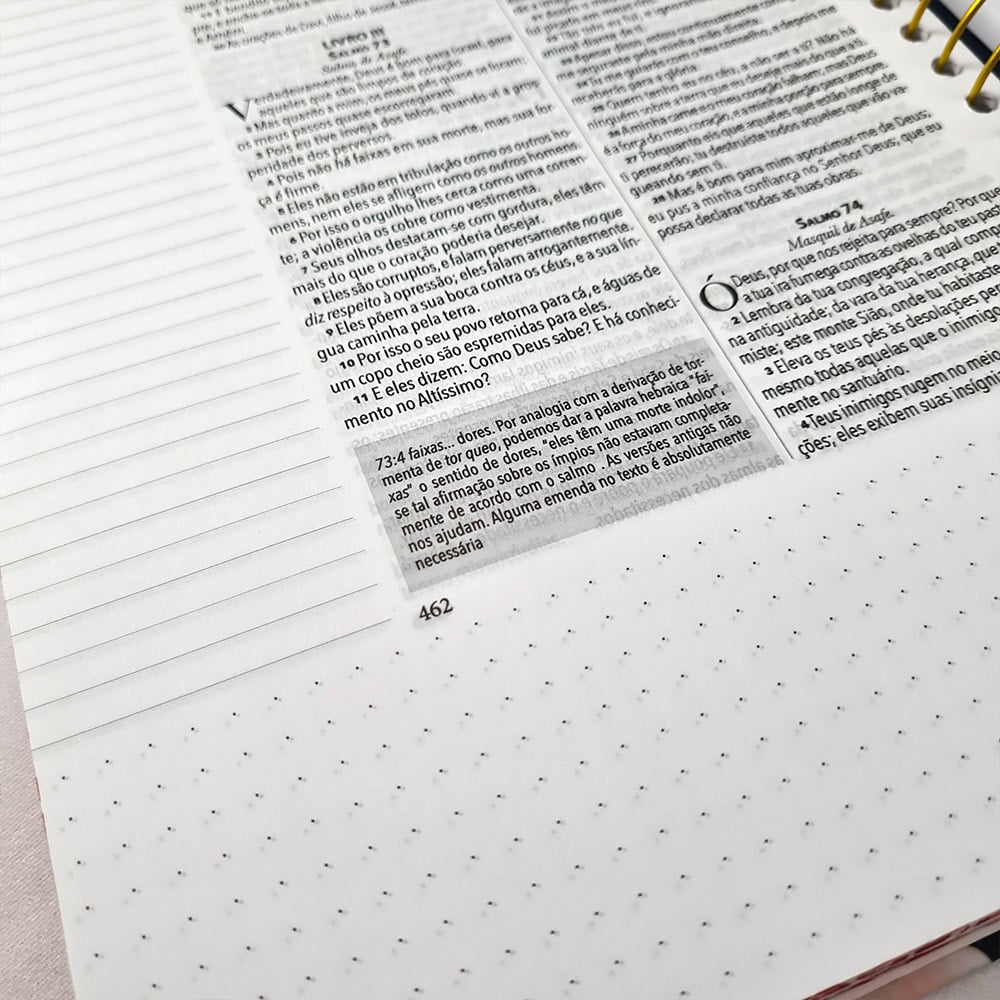 LIVRO III
SALMO 73
Salmo de Asafe.
Verdadeiramente, Deus é bom para Israel, para
aqueles que são limpos de coração.
2 Mas, quanto a mim, os meus pés quase se foram;
os meus passos quase escorregaram.
3 Pois eu tive inveja dos tolos, quando vi a pros-
peridade dos perversos.
4 Pois não há faixas em sua morte, mas sua for-
ça é firme.
5 Eles não estão em tribulação como os outros ho-
mens, nem eles se afligem como os outros homens.
6 Por isso o orgulho lhes cerca como uma corran-
te; a violência os cobre como vestimenta.
7 Seus olhos destacam-se com gordura, eles têm
mais do que o coração poderia desejar.
8 Eles são corruptos, e falam perversamente no que
diz respeito à opressão; eles falam arrogantemente.
9 Eles põem a sua boca contra os céus, e a sua lín-
gua caminha pela terra.
10 Por isso o seu povo retorna para cá, e águas de
um copo cheio são espremidas para eles.
11 E eles dizem: Como Deus sabe? E há conheci-
mento no Altíssimo?
73:4 faixas... dores. Por analogia com a derivação de tor-
menta de tor queo, podemos dar a palavra hebraica "fai-
xas" o sentido de dores, "eles têm uma morte indolor",
se tal afirmação sobre os ímpios não estavam completa-
mente de acordo com o salmo . As versões antigas não
nos ajudam. Alguma emenda no texto é absolutamente
necessária
462
me seguraste pela minha mão direita.
24 Tu me guiarás com o teu conselho, e depois me
receberás para a glória.
25 Quem tenho eu no céu, a não ser a ti? Não há
ninguém sobre a terra que eu deseje mais do que a ti.
26 A minha carne e o meu coração falham; mas Deus
é a força do meu coração, e a minha porção para sempre.
27 Porquanto eis que aqueles que estão longe de
ti perecerão; tu destruíste todos aqueles que vão va-
gueando sem ti.
28 Mas é bom para mim aproximar-me de Deus;
eu pus a minha confiança no Senhor Deus, que eu
possa declarar todas as tuas obras.
SALMO 74
Masquil de Asafe.
Ó Deus, por que nos rejeita para sempre? Por que
a tua ira fumega contra as ovelhas do teu pas
2 Lembra da tua congregação, a qual comp
na antiguidade; da vara da tua herança, que
miste; este monte Sião, onde tu habitaste
3 Eleva os teus pés às desolações per
mesmo todas aquelas que o inimigo
mente no santuário.
4 Teus inimigos rugem no meio
ções; eles exibem suas insígni